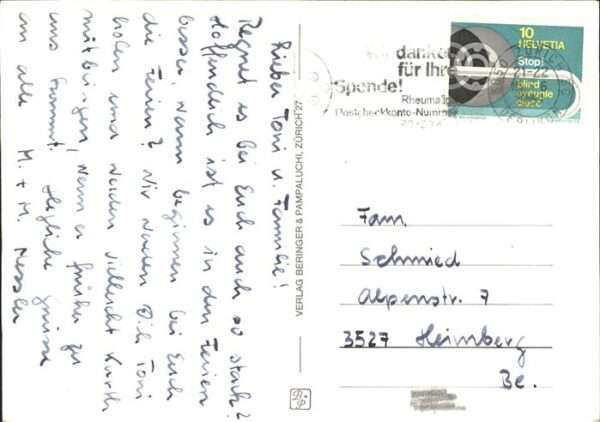 Lieber Toni u. Familie!
Regnet es bei Euch auch so stark?
Hoffentlich ist es in den Ferien
besser. Wann beginnen bei Euch
die Ferien? Wir werden Dich Toni
holen und werden vielleicht Kurth
mitbringen, wenn er früher zu
uns kommt. Herzliche Grüsse
an alle M. + M. Messler
VERLAG BERINGER & PAMPALUCHI, ZÜRICH 27
Wir danken
für Ihre
Spende!
Rheumaliga
Postcheckkonto-Nummer
10
HELVETIA
Stop!
blind
aveugle
cieco
Fam.
Schmied
Alpenstr. 7
3527 Heimberg
Be.